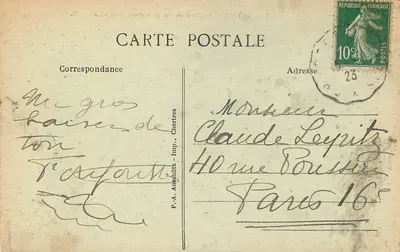 REPUBLIQUE FRANÇAISE
10c
23
CARTE POSTALE
Correspondance
Adresse
Un gros
baiser de
ton
Monsieur
Claude
40 rue Poussin
Paris 16e
P.-A. Anceblles - Imp., Chartres